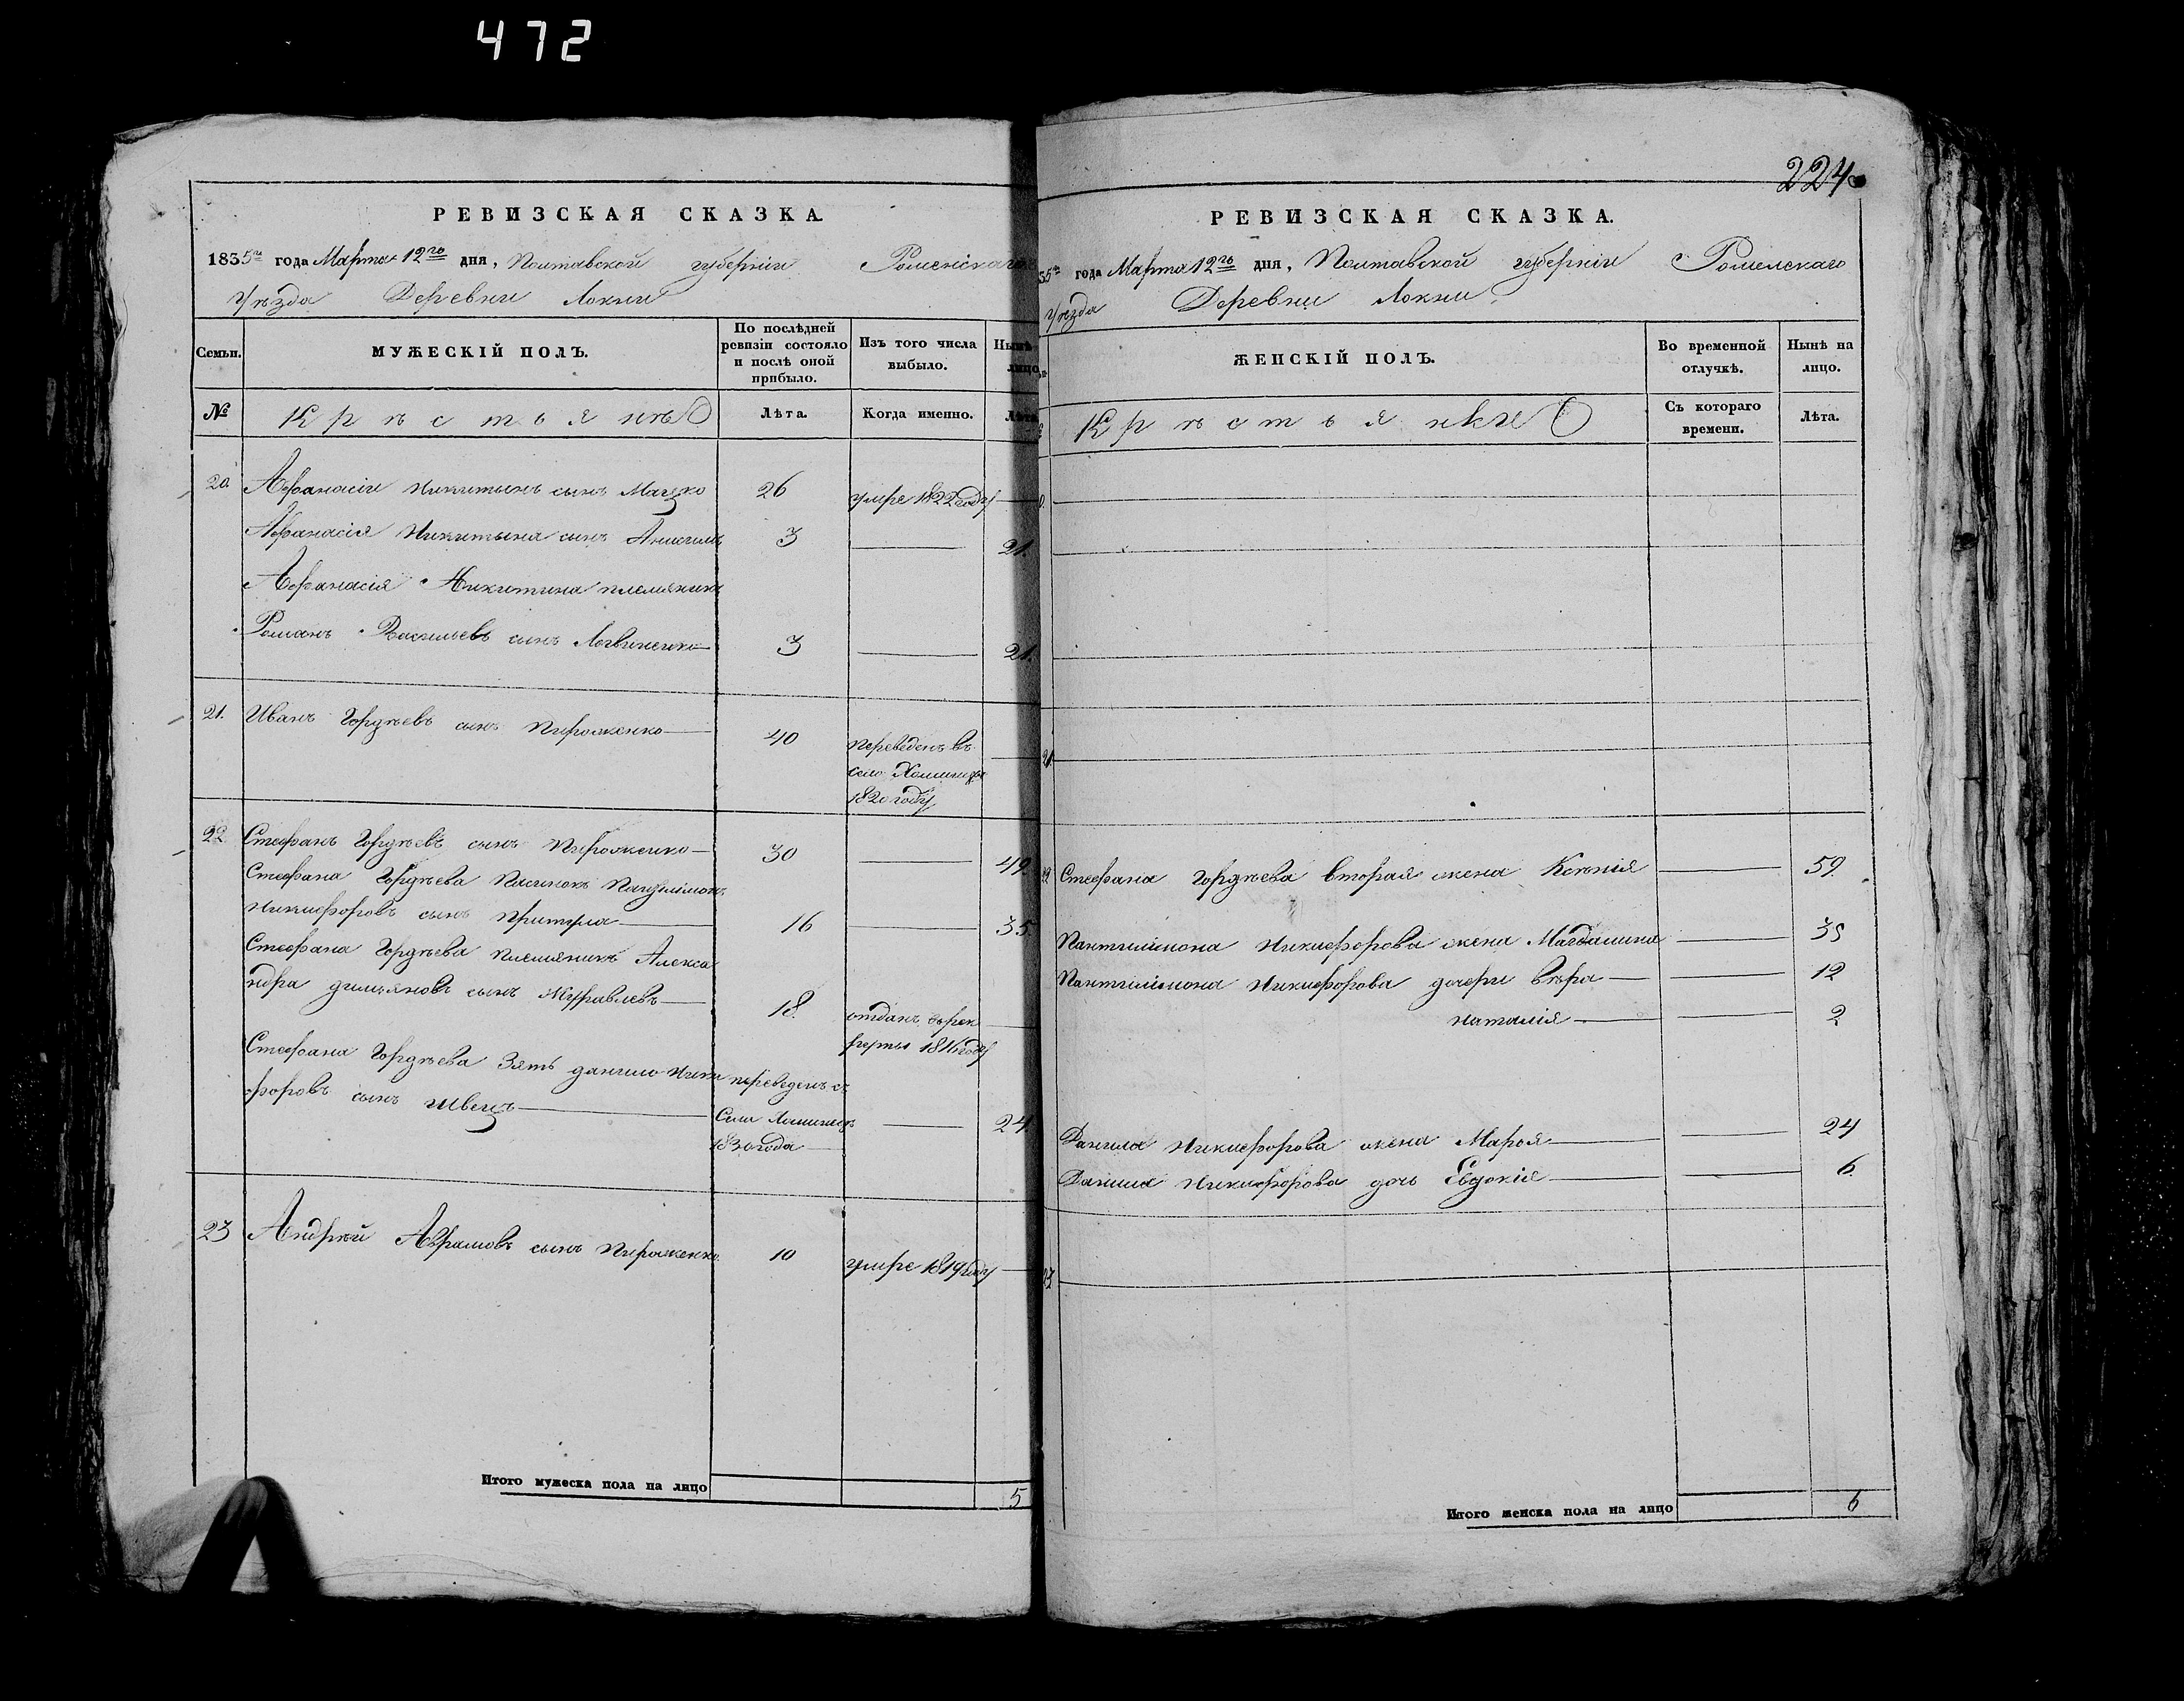 472
РЕВИЗСКАЯ СКАЗКА.
1835го года Марта 12го дня, Полтавской губернiи Роменскаго
Уѣзда Деревни Локни
Семьи. МУЖЕСКІЙ ПОЛЪ. По послѣдней ревизіи состояло и послѣ оной прибыло. Изъ того числа выбыло. Нынѣ лицо
№ Крѣстьянѣ Лѣта. Когда именно. Лѣта
20 Афанасiй Никитынъ сынъ 26 умре 1822 году
Афанасiя Никитына сынъ 3 21.
Афанасiя Никитина племяникъ
Романъ Васильевъ сынъ Логвиненко 3 21.
21. Иванъ Гордѣевъ сынъ Пироженко 40 переведенъ въ
село
1820 году
22 Стефанъ Гордѣевъ сынъ Пироженко 30 49.
Стефана Гордѣева Пасинокъ
Никифоровъ сынъ Притула 16 35.
Стефана Гордѣева племяникъ Алекса
ндра сынъ Журавлевъ 18. отданъ
1816 году
Стефана Гордѣева Зять Данило Ники переведенъ съ
форовъ сынъ Швецъ Села 24
1830 года
23 Андрѣй Аврамовъ сынъ Пироженко 10 умре 1819 году
Итого мужеска пола на лицо 5
224
РЕВИЗСКАЯ СКАЗКА.
35го года Марта 12го дня, Полтавской губернiи Роменскаго
Уѣзда Деревни Локни
ЖЕНСКІЙ ПОЛЪ. Во временной отлучкѣ. Нынѣ на лицо.
Крѣстьянки Съ котораго времени. Лѣта.
21.
22 Стефана Гордѣева вторая жена Ксѣнiя 59.
Пантилiмона Никифорова жена Магдалина 35
Пантилiмона Никифорова дочери вѣра 12
Наталiя 2
Данила Никифорова жена Марфя 24
Данила Никифорова дочь Евдокiя 6.
23
Итого женска пола на лицо 6